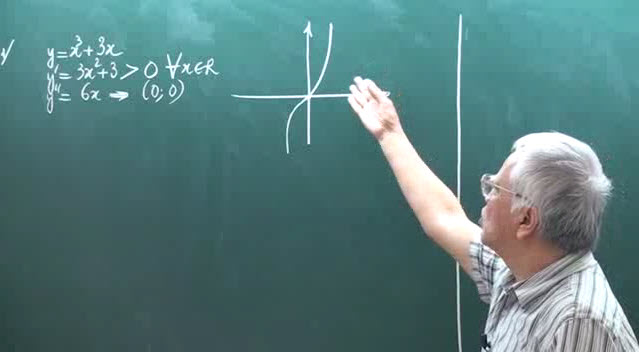 y=x³+3x
y'=3x²+3>0 ∀x∈R
y"= 6x → (0;0)